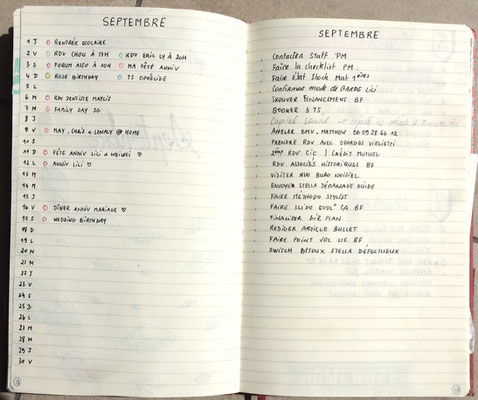 SEPTEMBRE
1 J RENTRÉE SCOLAIRE
2 V RDV CHOU À 17H RDV ERIC LY À 20H
3 S FORUM ASSO À 10H MA FÊTE ANNIV
4 D ROSE BIRTHDAY TS
5 L
6 M RDV DENTISTE MAYLIS
7 M FAMILY DAY SG
8 J
9 V MAY, CHRIS & @ HOME
10 S
11 D FÊTE ANNIV LILI &
12 L ANNIV LILI ♡
13 M
14 M
15 J
16 V DÎNER ANNIV MARIAGE ♡
17 S WEDDING BIRTHDAY
18 D
19 L
20 M
21 M
22 J
23 V
24 S
25 D
26 L
27 M
28 M
29 J
30 V
SEPTEMBRE
Contacter Staff PM
Faire la checklist PM
Faire État Stock Mat
Confirmer mode de GARDE LILI
TROUVER FINANCEMENT BF
BOOKER 3 TS
Capital
APPELER BMV - MATTHEW
PRENDRE RDV AVEC GEORGES
RDV CIC / CRÉDIT MUTUEL
RDV ASSOCIÉS HISTORIQUES BF
VISITER BURO NOISIEL
ENVOYER STELLA DÉPANNAGE GUIDE
FAIRE METHODO STYLIST
FAIRE SLIDE CA BF
FINALISER BIZ PLAN
REDIGER ARTICLE BULLET
FAIRE POINT VOL BF
SWITCH BIJOUX STELLA DÉFECTUEUX